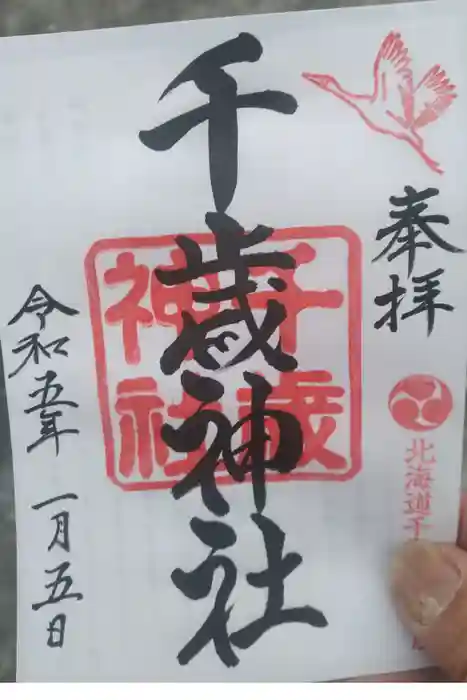 奉拝
北海道千
千歳神社
千歳
神社
令和五年 一月五日